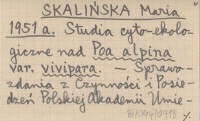 SKALIŃSKA Maria
1951 a. Studia cyto-ekolo-
giczne nad Poa alpina
var. vivipara. — Sprawo-
zdania z Czynności i Posie-
dzeń Polskiej Akademii Umie-